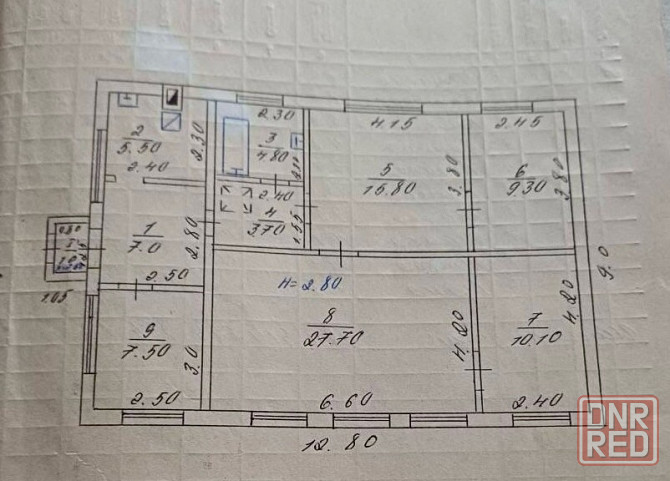 2.30
4.15
2.45
2
5.50
2.40
2.30
3
4.80
5
15.80
3.80
6
9.30
3.80
2.40
4
3.70
1.55
0.80
1
7.0
2.80
2.50
1.05
9.0
H=2.80
8
27.70
4.20
7
10.10
4.20
9
7.50
3.0
2.50
6.60
2.40
12.80
DNR
RED